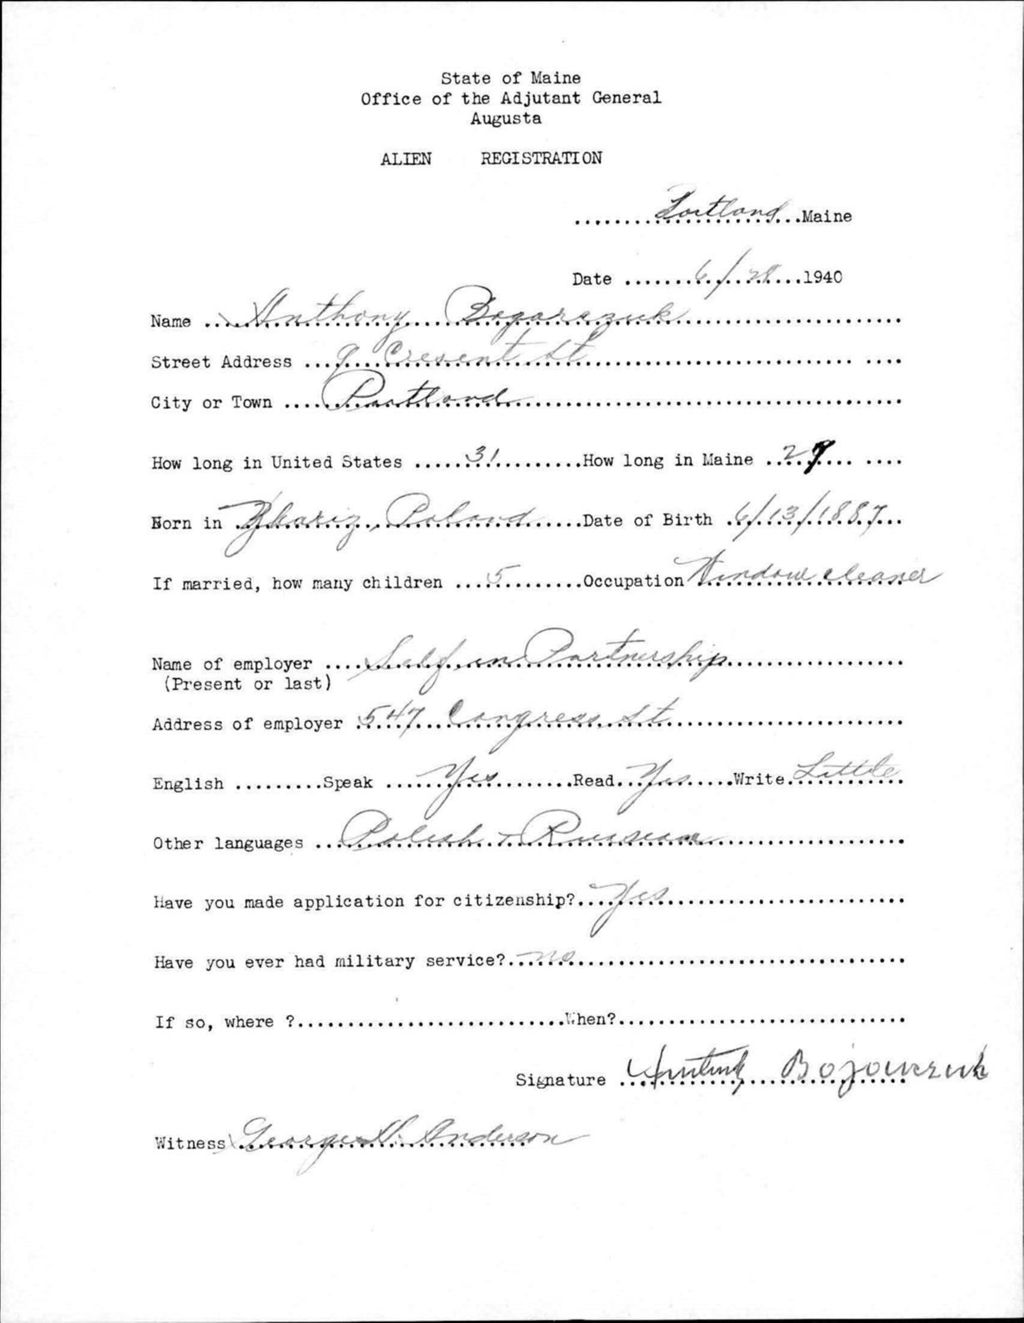 State of Maine
Office of the Adjutant General
Augusta
ALIEN REGISTRATION
........Portland...Maine
Date .......6/28....1940
Name ..Anthony Bogarazuk......................
Street Address ...9 Cresent St......................
City or Town ....Portland......................
How long in United States .....31.........How long in Maine ..29... ....
Born in Poland.....Date of Birth .6/13/1887..
If married, how many children ...5.........Occupation Window cleaner
Name of employer ....Self in Partnership..................
(Present or last)
Address of employer .547 Congress St.......................
English .........Speak ....Yes........Read..Yes.....Write.Little.
Other languages ..Polish + Russian....................
Have you made application for citizenship?...Yes........................
Have you ever had military service?.no.................................
If so, where ?..........................When?............................
Signature
Witness George Anderson